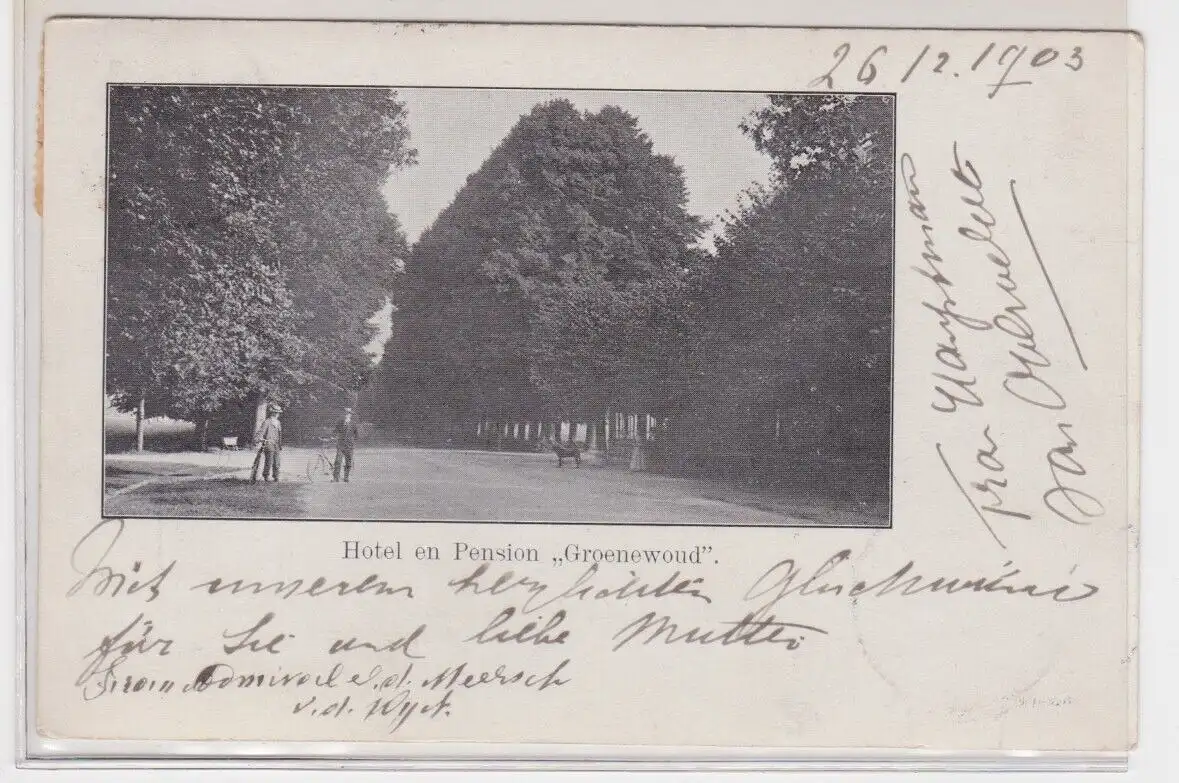 26/12.1903
Frau Hauptmann
Jan
Hotel en Pension „Groenewoud”.
Mit unseren herzlichsten Glückwünsc
für Sie und liebe Mutter
Frau Admiral v.d. Meersch
v.d. Wyck.